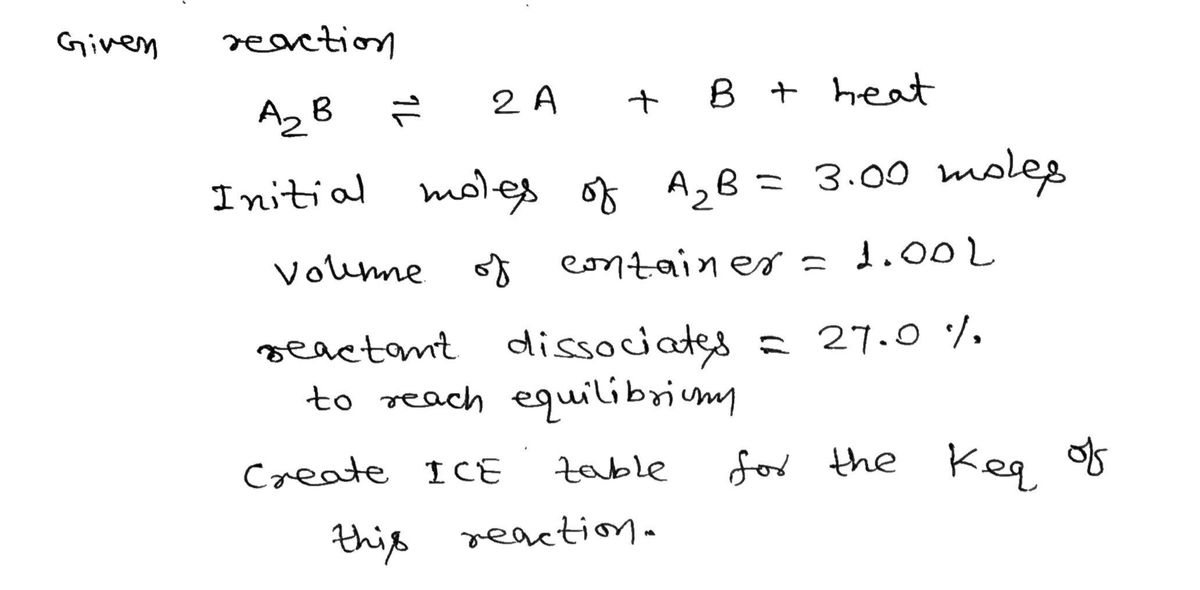 Given reaction
A₂B ⇌ 2A + B + heat
Initial moles of A₂B = 3.00 moles
Volume of container = 1.00L
reactant dissociates = 27.0 %
to reach equilibrium
Create ICE table for the Keq of
this reaction.